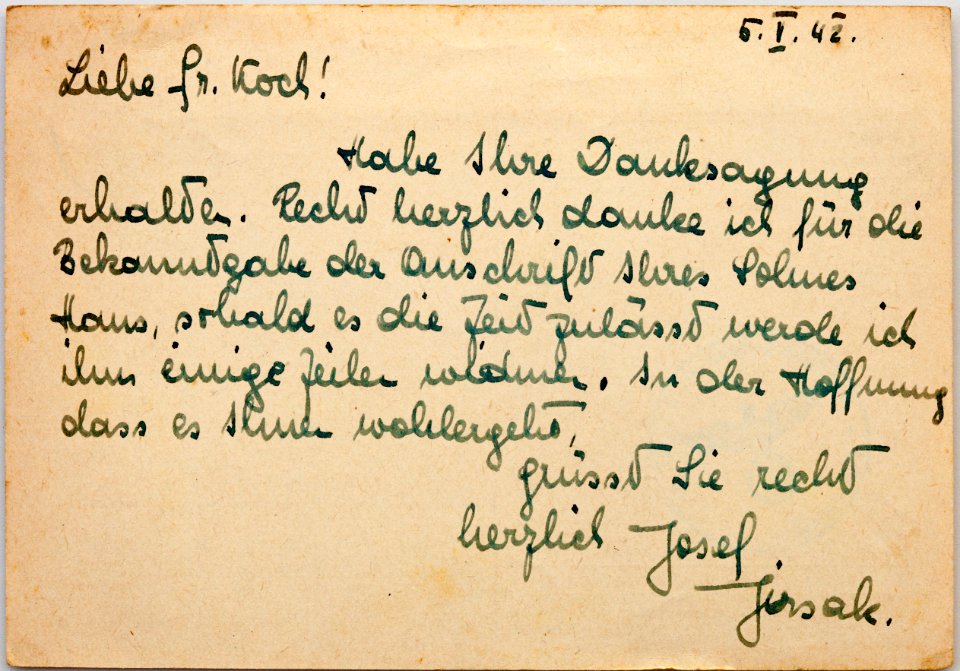 5.V.42.
Liebe Fr. Koch!
Habe Ihre Danksagung
erhalten. Recht herzlich danke ich für die
Bekanntgabe der Anschrift Ihres Sohnes
Hans, sobald es die Zeit zulässt werde ich
ihm einige Zeilen widmen. In der Hoffnung
dass es Ihnen wohlergeht,
grüsst Sie recht
herzlich Josef
Jirsak.